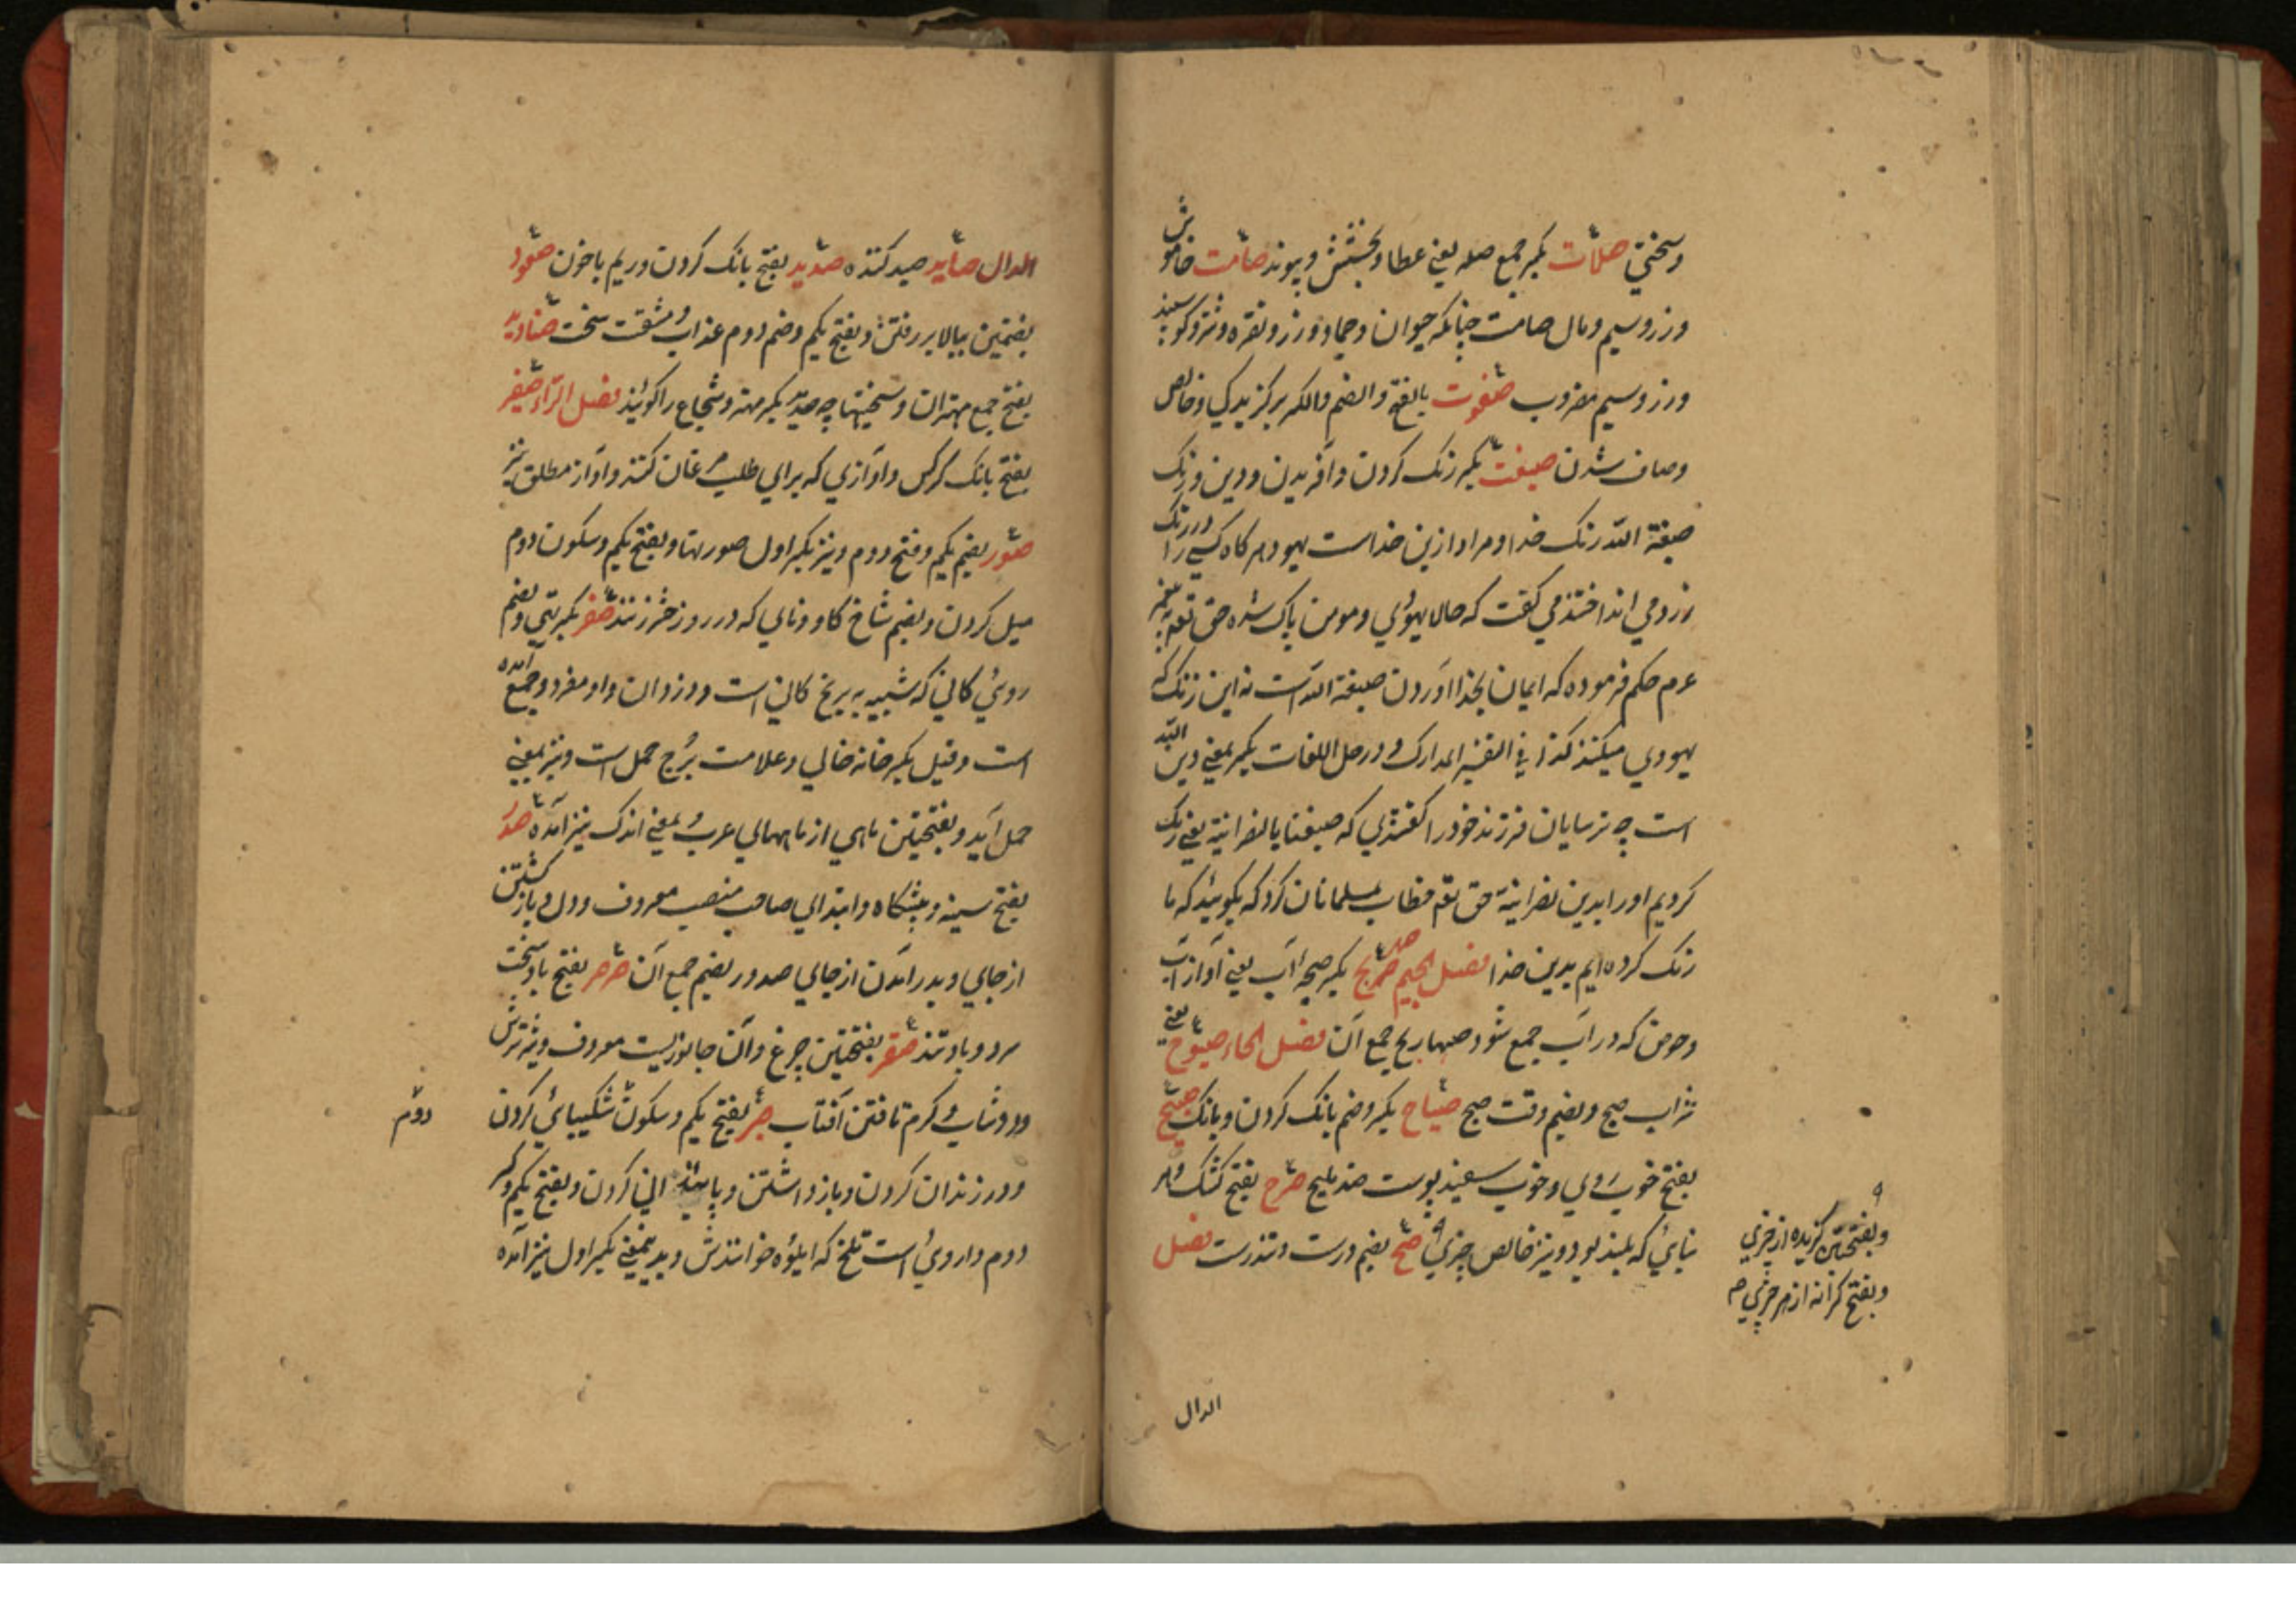 وسختی صلات بکسر جمع صله یعنی عطا و بخشش و پیوند صامت خاموش
و زر و سیم و مال صامت چنانکه حیوان و جماد و زر و نقره و متروکو سفید
و زر و سیم مضروب صفوت بالفتح و الضم والکسر برکزیدکی و خالص
وصاف شدن صبغت بکسر رنک کردن و آفریدن و دین و رنک
صبغة الله رنک خدا و مراد ازین خداست یهود هرکاه کسی را در رنک
زرد می انداختند می کفت که حالا یهودی و مومن پاک شده حق تعه
عرم حکم فرموده که ایمان بخدا اوردن صبغة الله است نه این رنک که
یهودی میکنند کذا فی التفسیر المدارک و در حل اللغات بکسر بمعنی دین الله
است چه ترسایان فرزند خود را کفتندی که صبغنا بالنصرانیة یعنی رنک
کردیم او را بدین نصرانیة حق تعه خطاب بمسلمانان کرد که بکوئید که ما
رنک کرده ایم بدین خدا فصل الجیم صهریج بکسر آب یعنی آواز آب
وحوض که در آب جمع شود صهاریج جمع آن فصل الحاء صبوح یعنی
شراب صبح و بضم وقت صبح صیاح بکسر و ضم بانک کردن و بانک صبیح
بفتح خوب روی و خوب سفید پوست ضد ملیح صرح بفتح کشک و هر
بنائی که بلند بود و نیز خالص چیزی صح بضم درست و تندرست فصل
وبفتحتین کزیده از چیزی
وبفتح کرانه از هر چیزی
الدال
الدال صاید صید کننده صدید بفتح بانک کردن و ریم با خون صعود
بضمتین ببالا بر رفتن و بفتح یکم و ضم دوم عذاب و مشقت سخت صنادید
بفتح جمع مهتران و سختیها چه صندید بکسر مهتر و شجاع را کوئید فصل الراء صفیر
بفتح بانک کرکس و آوازی که برای طلب مرغان کنند و آواز مطلق نیز
صور بضم یکم و فتح دوم و نیز بکسر اول صورتها و بفتح یکم و سکون دوم
میل کردن و بضم شاخ کاو و نای که در روز حشر زنند صفر بکسر تهی و بضم
روئی کانی که شبیه به برنج کانی است و وزن آن واو مفرد و جمع آمده
است وقیل بکسر خانه خالی و علامت برج حمل است و نیز بمعنی
حمل آید و بفتحتین ماهی از ماههای عرب و بمعنی اندک نیز آمده صدر
بفتح سینه و پیشکاه و ابتدای صاحب منصب معروف و دل و بازکشتن
از جای و بدر آمدن از جای صدور بضم جمع آن صرصر بفتح باد سخت
سرد و باد تند صقر بفتحتین چرغ و آن جانوریست معروف و شیر ترش
و دوشاب و کرم تافتن آفتاب صبر بفتح یکم و سکون شکیبائی کردن
دوم
و در زندان کردن و باز داشتن و کردن و بفتح یکم و کسر
دوم داروئی است تلخ که ایلوه خوانندش و بدینمعنی بکسر اول نیز آمده